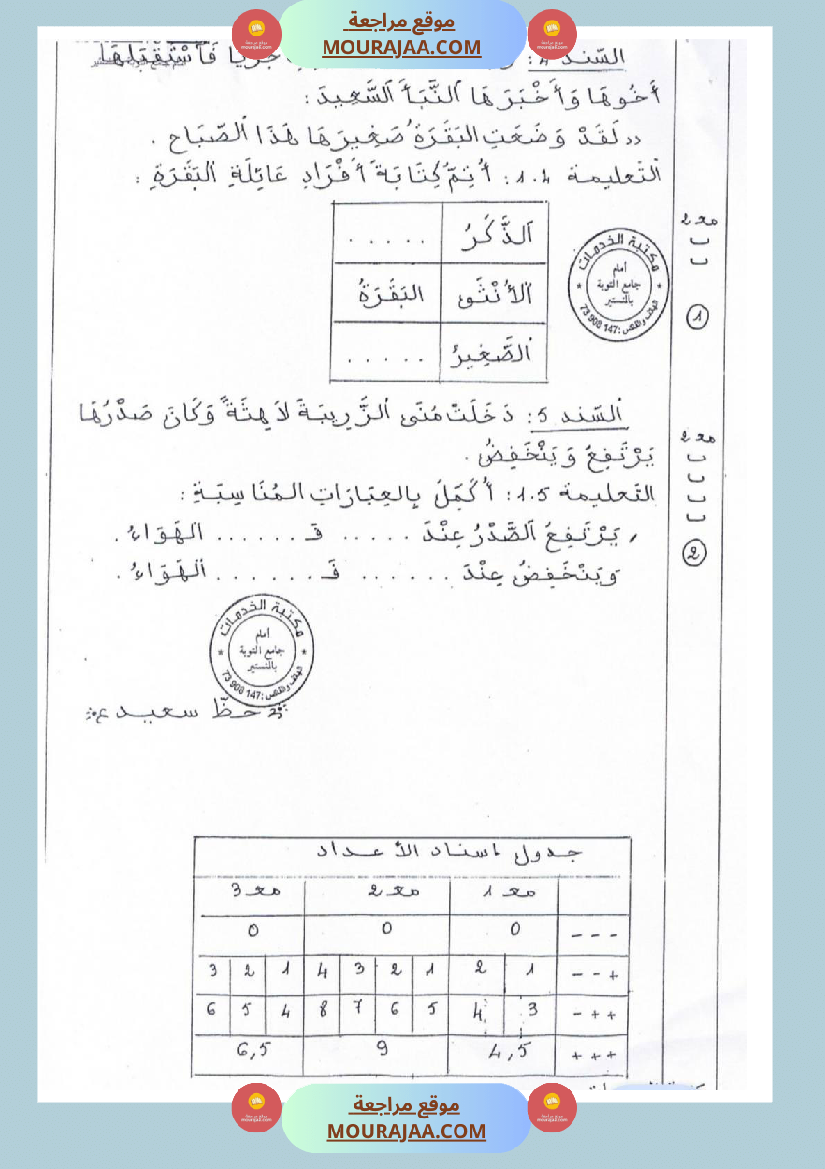 موقع مراجعة
MOURAJAA.COM
السّند 4: جَرْيًا فَٱسْتَقْبَلَهَا
أَخُوهَا وَأَخْبَرَهَا ٱلنَّبَأَ ٱلسَّعِيدَ:
« لَقَدْ وَضَعَتِ البَقَرَةُ صَغِيرَهَا هَذَا ٱلصَّبَاحِ .
ٱلتَّعليمة 1.4: أُتِمُّ كِتَابَةَ أَفْرَادِ عَائِلَةِ ٱلبَقَرَةِ :
ٱلذَّكَرُ .....
ٱلأُنْثَى البَقَرَةُ
ٱلصَّغِيرُ .....
مع 2
1
مكتبة الخدمات
أمام
جامع التوبة
بالمنستير
73 908 147
السّند 5: دَخَلَتْ مُنَى ٱلزَّرِيبَةَ لاَهِثَةً وَكَانَ صَدْرُهَا
يَرْتَفِعُ وَيَنْخَفِضُ.
التّعليمة 1.5: أُكَمِّلُ بِالعِبَارَاتِ المُنَاسِبَةِ:
يَرْتَفِعُ ٱلصَّدْرُ عِنْدَ ..... فَـ ...... الهَوَاءُ.
وَيَنْخَفِضُ عِنْدَ ...... فَـ ....... ٱلهَوَاءُ.
مع 2
2
مكتبة الخدمات
أمام
جامع التوبة
بالمنستير
73 908 147
حظّ سعيد
جدول إسناد الأعداد
مع 1 مع 2 مع 3
- - - 0 0 0
+ - - 1 2 1 2 3 4 1 2 3
+ + - 3 4 5 6 7 8 4 5 6
+ + + 4,5 9 6,5
موقع مراجعة
MOURAJAA.COM